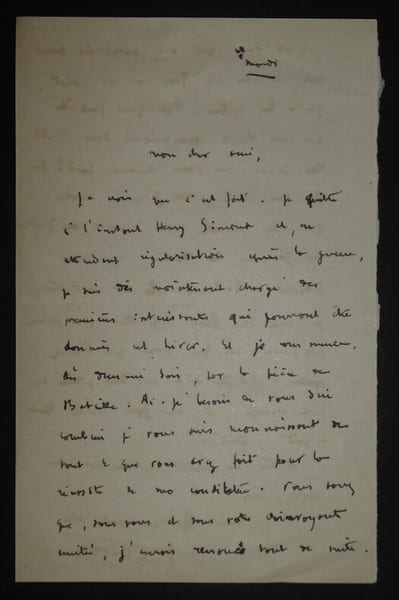 mardi
mon cher ami,
Je crois que c'est fait. Je quitte
à l'instant Henry Simond et, en
attendant régularisation après la guerre,
je suis dès maintenant chargé des
premières intéressantes qui pourront être
données cet hiver. Et je commence,
dès demain soir, par la pièce de
Bataille. Ai-je besoin de vous dire
combien je vous suis reconnaissant de
tout ce que vous avez fait pour la
réussite de ma candidature. Vous savez
que, sans vous et sans votre clairvoyante
amitié, j'aurais renoncé tout de suite.